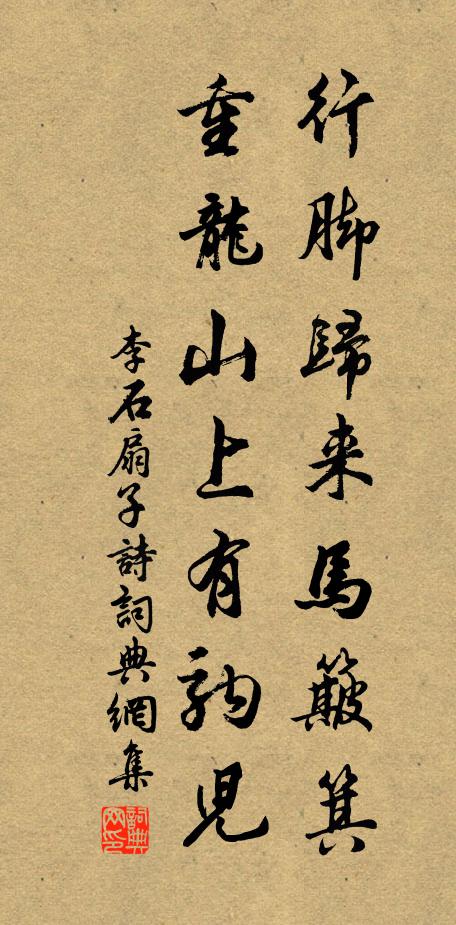 行脚歸来馬簸箕
重龍山上有兒
李石扇子詩詞典網集
詞典网印